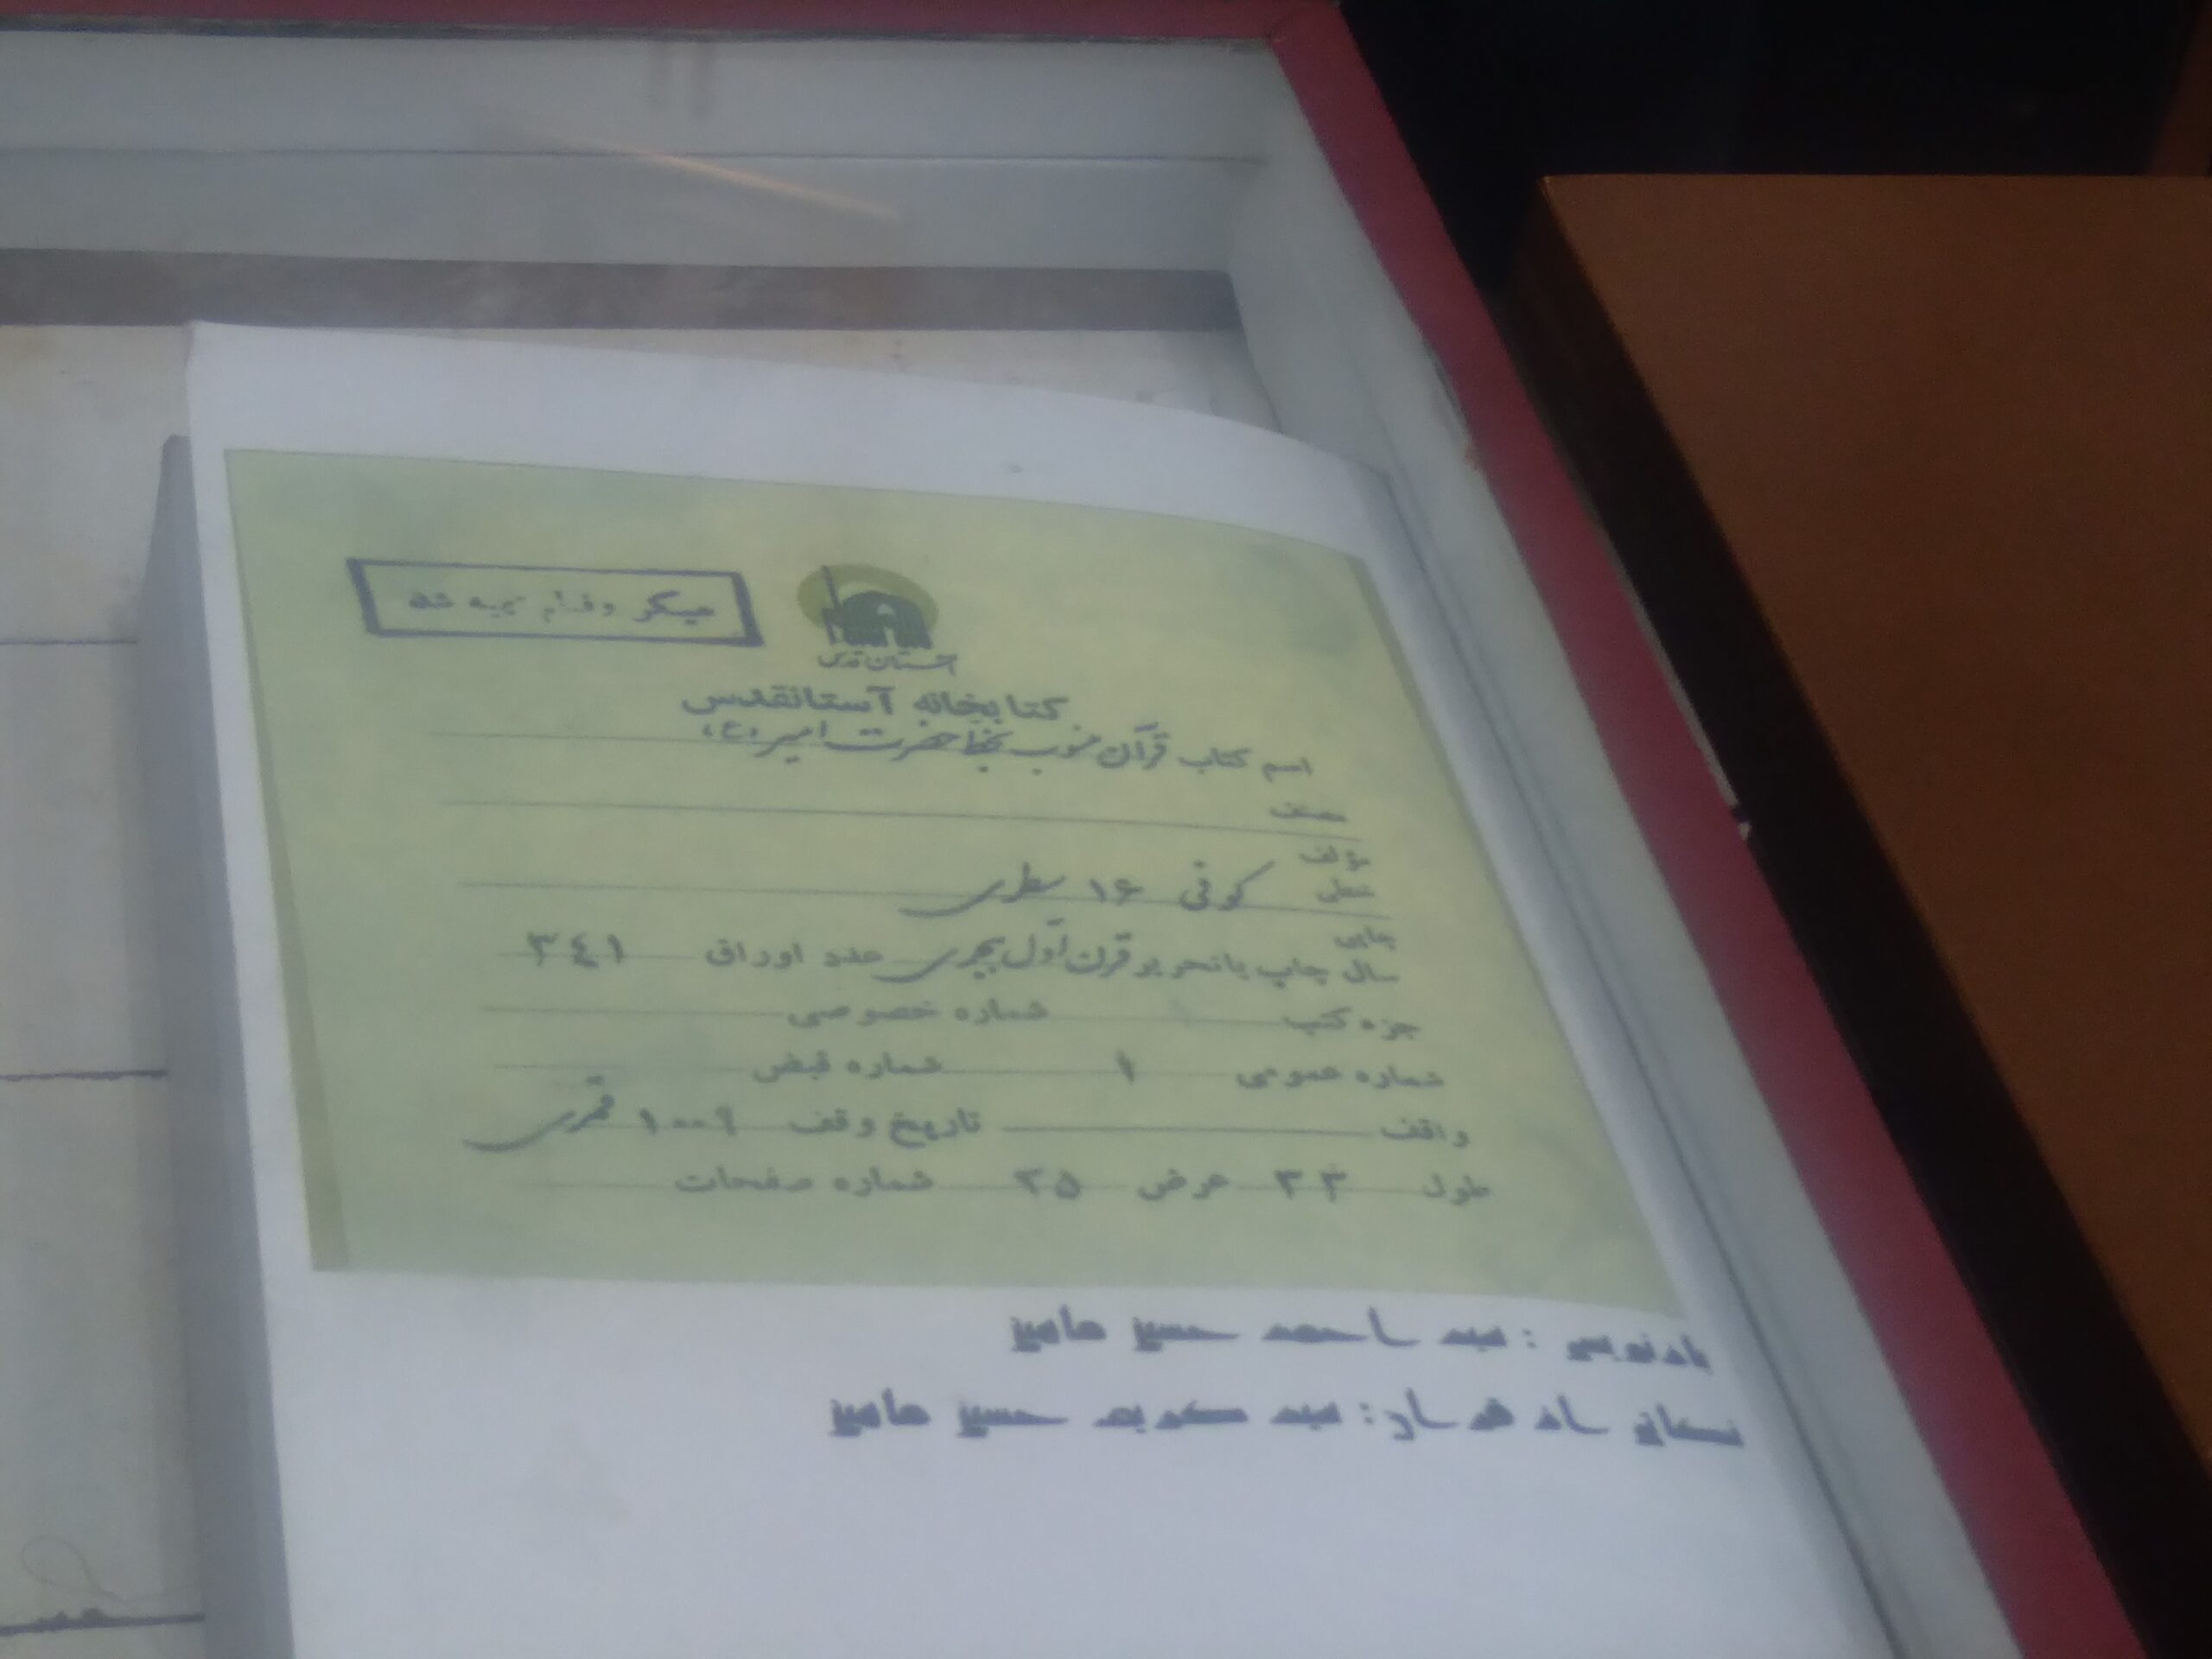 میکروفیلم تهیه شد
آستان قدس
کتابخانه آستانقدس
اسم کتاب قرآن منسوب بخط حضرت امیر (ع)
مصنف
مؤلف
خطی کوفی ۱۶ سطری
چاپی
سال چاپ یا تحریر قرن اول هجری عدد اوراق ۳٤۱
جزء کتب شماره خصوصی
شماره عمومی ۱ شماره قبض
واقف تاریخ وقف ۱۰۰۹ قمری
طول ۳۳ عرض ۲۵ شماره صفحات
بازنویسی : سید احمد حسینی
: سید کریم حسینی